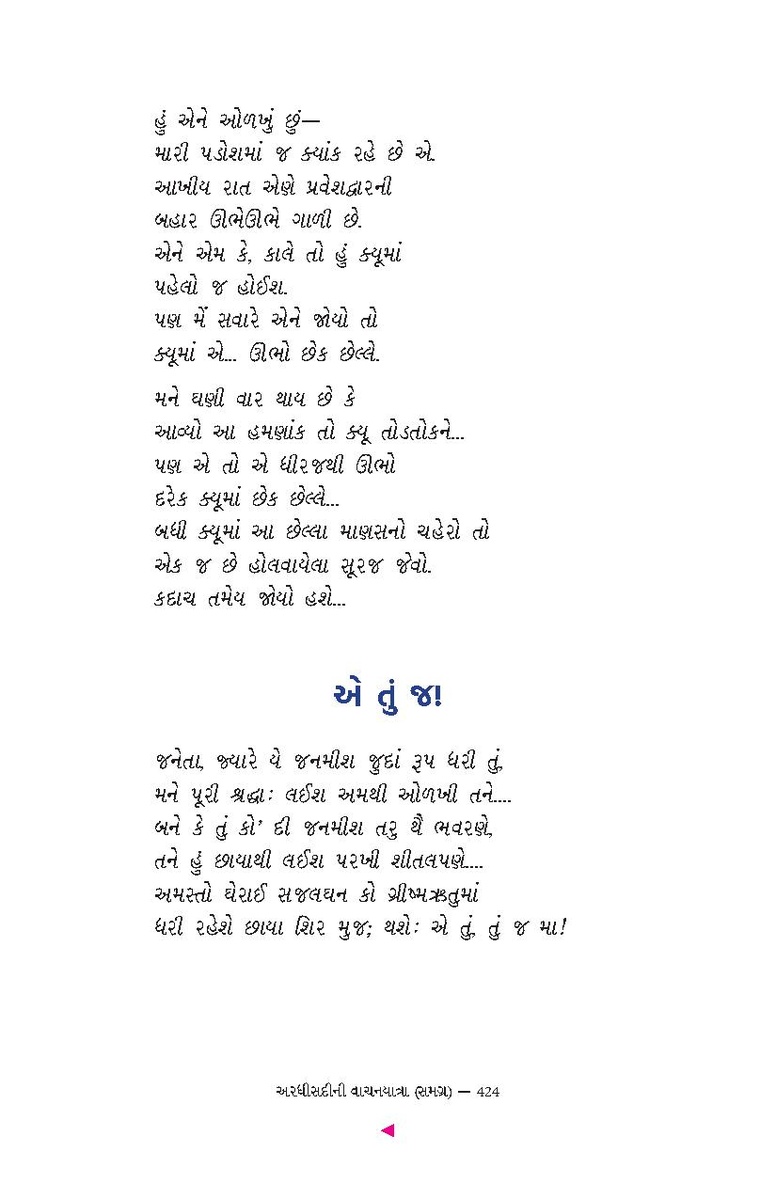 હું એને ઓળખું છું—
મારી પડોશમાં જ ક્યાંક રહે છે એ.
આખીય રાત એણે પ્રવેશદ્વારની
બહાર ઊભેઊભે ગાળી છે.
એને એમ કે, કાલે તો હું ક્યૂમાં
પહેલો જ હોઈશ.
પણ મેં સવારે એને જોયો તો
ક્યૂમાં એ... ઊભો છેક છેલ્લે.
મને ઘણી વાર થાય છે કે
આવ્યો આ હમણાંક તો ક્યૂ તોડતોકને...
પણ એ તો એ ધીરજથી ઊભો
દરેક ક્યૂમાં છેક છેલ્લે...
બધી ક્યૂમાં આ છેલ્લા માણસનો ચહેરો તો
એક જ છે હોલવાયેલા સૂરજ જેવો.
કદાચ તમેય જોયો હશે...
એ તું જ!
જનેતા, જ્યારે યે જનમીશ જુદાં રૂપ ધરી તું,
મને પૂરી શ્રદ્ધાઃ લઈશ અમથી ઓળખી તને....
બને કે તું કો’ દી જનમીશ તરુ થૈ ભવરણે,
તને હું છાયાથી લઈશ પરખી શીતલપણે....
અમસ્તો ઘેરાઈ સજલઘન કો ગ્રીષ્મઋતુમાં
ધરી રહેશે છાયા શિર મુજ; થશેઃ એ તું, તું જ મા!
અરધીસદીની વાચનયાત્રા (સમગ્ર) — 424